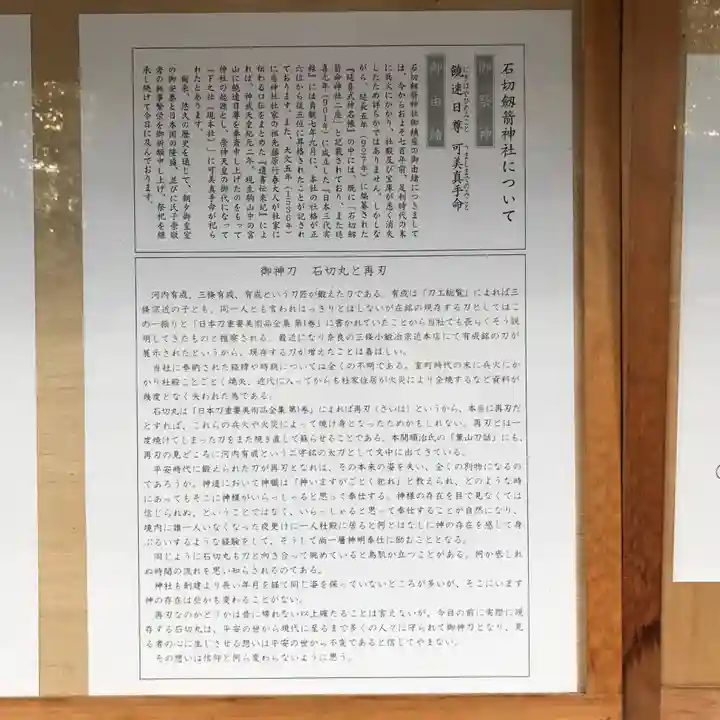 石切劔箭神社について
御祭神
饒速日尊 可美真手命
にぎはやひのみこと うましまでのみこと
御由緒
石切劔箭神社御鎮座の御由緒につきまして
は、今からおよそ七百年前、足利時代の末
に兵火にかかり、社殿及び宝庫が悉く消失
したため詳らかではありません。しかしな
がら、延長五年(927年)に編纂された
『延喜式神名帳』の中には、既に「石切劔
箭命神社二座」と記載されており、また延
喜元年(901年)に成立した『日本三代実
録』には貞観七年九月に、本社の社格が正
六位から従五位に昇格されたことが記され
ております。また、天文五年(1536年)
に当神社社家の祖先藤原行春大人が社家に
伝わる口伝をまとめた『遺書伝来記』によ
れば、神武天皇紀元二年、現生駒山中の宮
山に饒速日尊を奉斎申し上げたのをもって
神社の起源とし、崇神天皇の御代になって
「下之社(現本社)」に可美真手命が祀ら
れたとあります。
爾来、悠久の歴史を通じて、朝夕御皇室
の御安泰と日本国の隆盛、並びに氏子崇敬
者の無事繁栄を御祈願申し上げ、祭祀を継
承し続けて今日に及んでおります。
御神刀 石切丸と再刃
河内有成、三條有成、有成という刀匠が鍛えた刀である。有成は「刀工総覧」によれば三
條宗近の子とも、同一人とも言われはっきりとはしないが在銘の現存する刀としてはこ
の一振りと「日本刀重要美術品全集 第1巻」に書かれていたことから当社でも長らくそう説
明してきたものと推察される。最近になり奈良の三條小鍛冶宗近本店にて有成銘の刀が
展示されたというから、現存する刀が増えたことは喜ばしい。
当社に奉納された経緯や時期については全くの不明である。室町時代の末に兵火にか
かり社殿ことごとく焼失、近代に入ってからも社家住居が火災により全焼するなど資料が
幾度となく失われた為である。
石切丸は「日本刀重要美術品全集 第1巻」によれば再刃(さいは)というから、本当に再刃だ
とすれば、これらの兵火や火災によって焼け身となったためかもしれない。再刃とは一
度焼けてしまった刀をまた焼き直して蘇らせることである。本間順治氏の「薫山刀話」にも、
再刃の見どころに河内有成という二字銘の太刀として文中に出てきている。
平安時代に鍛えられた刀が再刃となれば、その本来の姿を失い、全くの別物になるの
であろうか。神道において神職は「神いますがごとく祀れ」と教えられ、どのような時
にあってもそこに神様がいらっしゃると思って奉仕する。神様の存在を目で見なくては
信じられぬ、ということではなく、いらっしゃると思って奉仕することが自然になり、
境内に誰一人いなくなった夜更けに一人社殿に居ると何とはなしに神の存在を感じて身
ぶるいするような経験をして、そうして尚一層神明奉仕に励むこととなる。
同じように石切丸も刀と向き合って眺めていると鳥肌が立つことがある。何か悲しれ
ぬ時間の流れを思い知らされるのである。
神社も創建より長い年月を経て同じ姿を保っていないところが多いが、そこにいます
神の存在は些かも変わることがない。
再刃なのかどうかは昔に帰れない以上確たることは言えないが、今目の前に実際に現
存する石切丸は、平安の世から現代に至るまで多くの人々に守られて御神刀となり、見
る者の心に生じさせる想いは平安の世から不変であると信じてやまない。
その想いは信仰と何ら変わらないように思う。